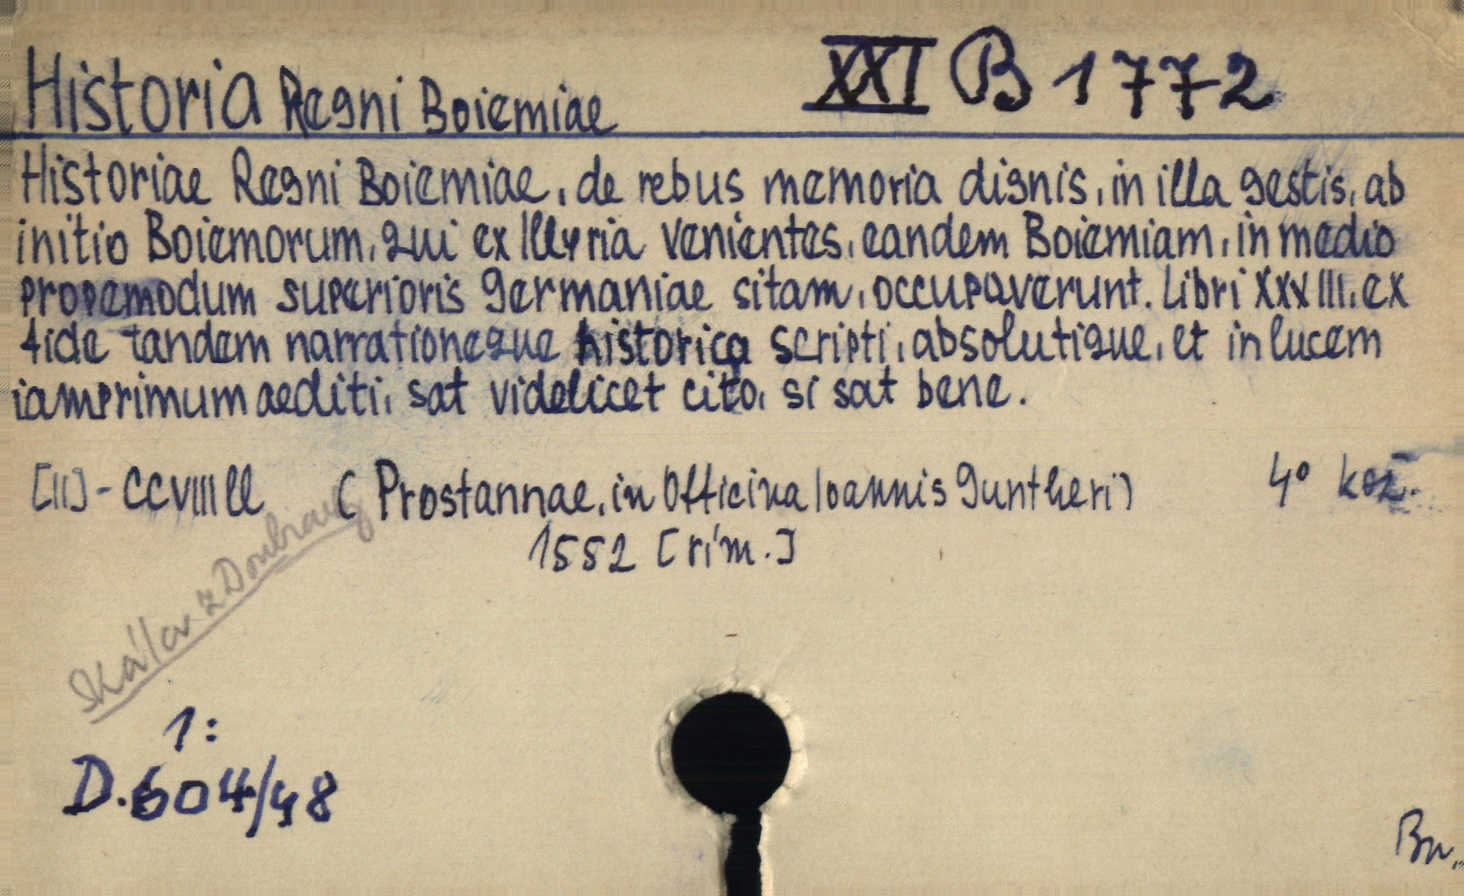 Historia Regni Boiemiae XXI B 1772
Historiae Regni Boiemiae, de rebus memoria dignis, in illa gestis, ab
initio Boiemorum, qui ex Illyria venientes, eandem Boiemiam, in medio
propemodum superioris Germaniae sitam, occupaverunt. Libri XXXIII, ex
fide tandem narrationeque historica scripti, absolutique, et in lucem
iamprimum aediti, sat videlicet cito, si sat bene.
[II] - CCVIIII ll ( Prostannae, in Officina Ioannis Guntheri) 4° kož.
1552 [řím.]
Skála z Doubravy
1:
D.604/48
Bn.